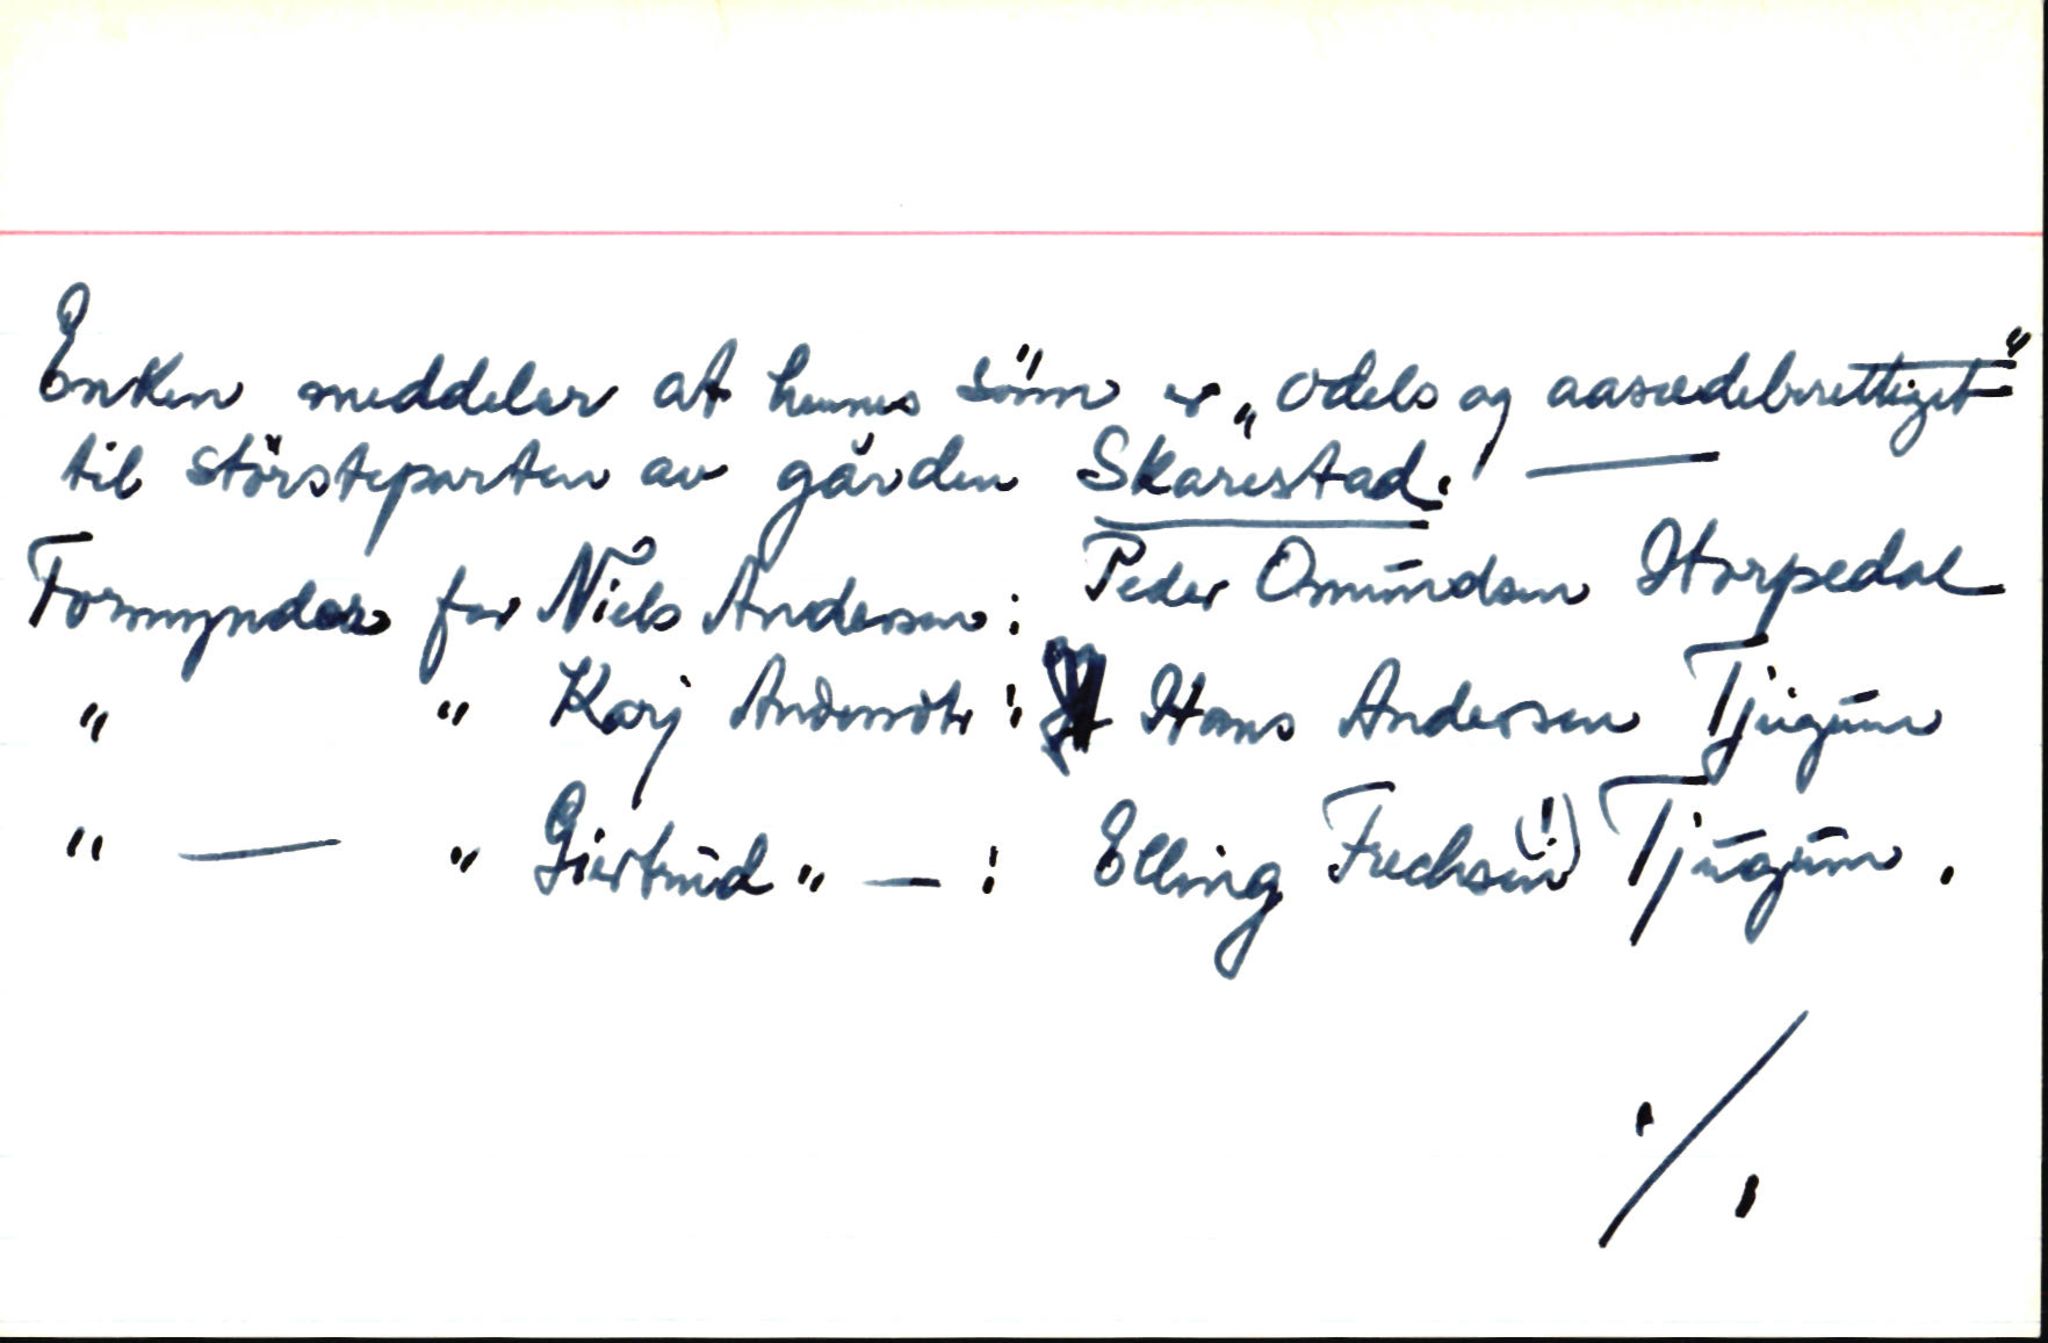 Enken meddeler at hennes sönn er „odels og aasædesberettiget"
til störsteparten av gården Skarestad. —
Formynder for Niels Andersen: Peder Omundsen Horpedal
" " Karj Andersdtr: Hans Andersen Tjugum
" — " Giertrud " — : Elling Frechsen (!) Tjugum.
./.